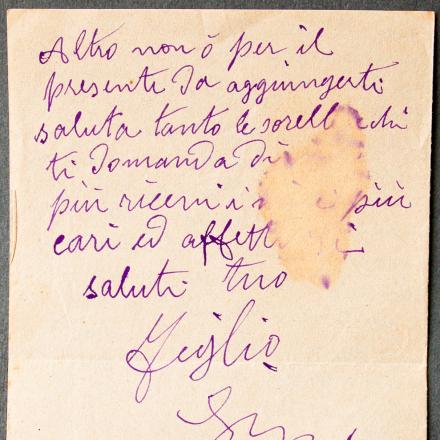 Altro non ò per il
presente da aggiungerti
saluta tanto le sorelle chi
ti domanda di
più ricevi i più
cari ed
saluti tuo
figlio